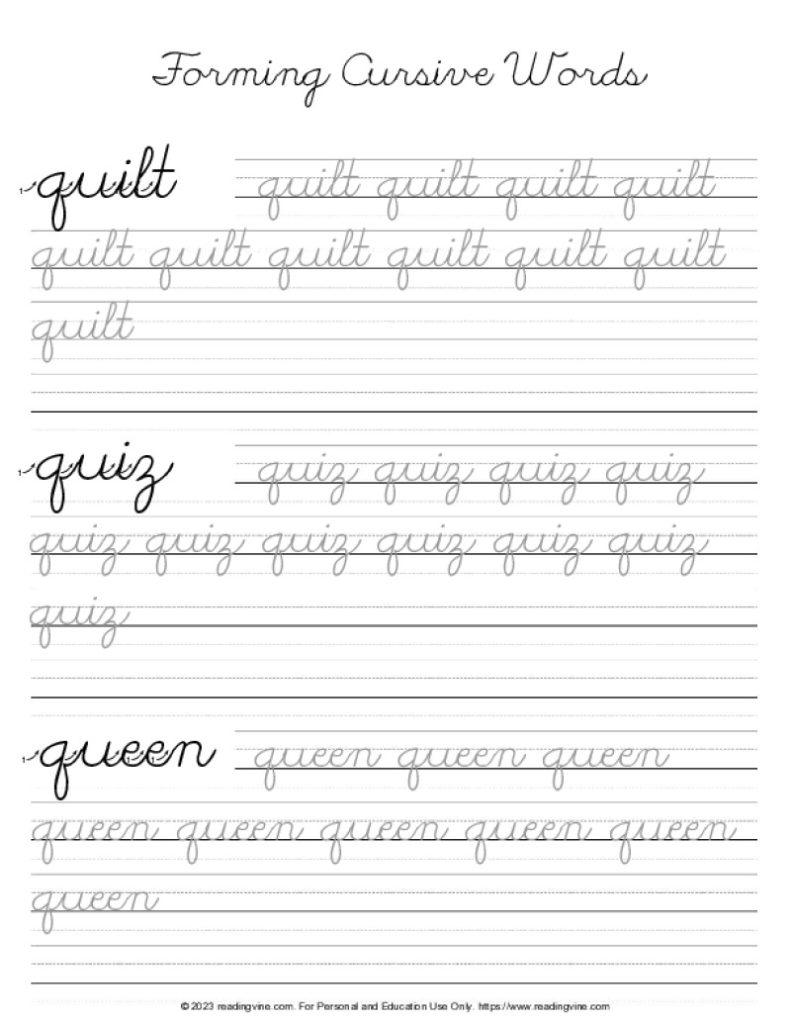 Forming Cursive Words
quilt quilt quilt quilt quilt
quilt quilt quilt quilt quilt quilt
quilt
quiz quiz quiz quiz quiz
quiz quiz quiz quiz quiz quiz
quiz
queen queen queen queen
queen queen queen queen queen
queen
© 2023 readingvine.com. For Personal and Education Use Only. https://www.readingvine.com